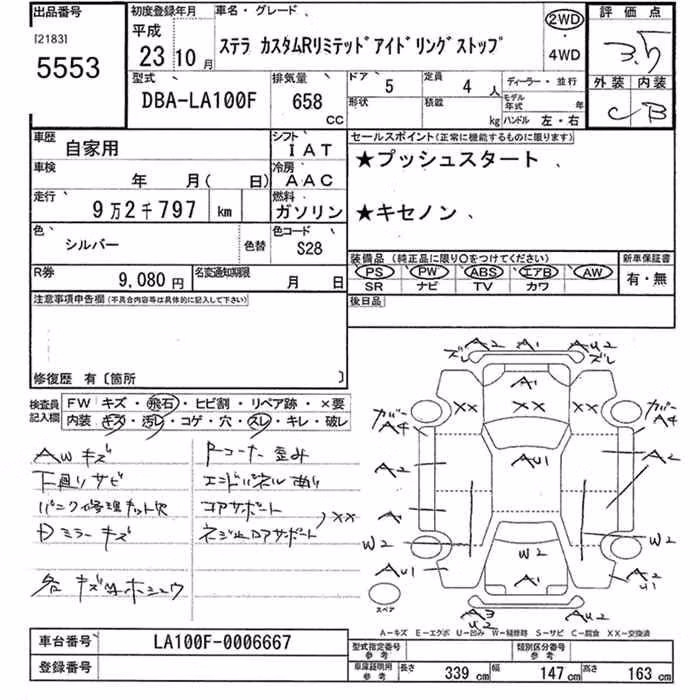 出品番号
[2183]
5553
初度登録年月
平成
23 10 月
車名・グレード
ステラ カスタムRリミテッドアイドリングストップ
2WD
・
4WD
評価点
3.5
外装 内装
C B
型式
DBA-LA100F
排気量
658
CC
ドア 5
定員 4 人
形状
積載 kg
ディーラー・並行
モデル年式 年
ハンドル 左・右
車歴 自家用
シフト IAT
車検 年 月( 日)
冷房 AAC
走行 9万2千797 km
燃料 ガソリン
色 シルバー 色替
色コード S28
R券 9,080円
名変通知期限 月 日
セールスポイント(正常に機能するものに限ります)
★プッシュスタート
★キセノン
装備品(純正品に限り〇をつけてください)
PS PW ABS エアB AW
SR ナビ TV カワ
新車保証書
有・無
後日品
注意事項申告欄(不具合内容等は具体的に記入して下さい)
修復歴 有〔箇所 〕
検査員記入欄
FW キズ・飛石・ヒビ割・リペア跡・×要
内装 キズ・汚レ・コゲ・穴・スレ・キレ・破レ
AWキズ
下廻リサビ
パンク修理キット欠
Dミラーキズ
各キズ凹ホシュウ
Pコーナー歪み
エンドパネル曲り
コアサポート
ネジ止ロアサポート
××
A2 A1 AU2
ズレ ズレ
A1
×× ×× ××
カバー カバー
A4 A4
AU1
A2 A2
A1
W2 W2 W2
AU1 A1 A2
U1
スペア
A3 AU2
U2
A―キズ E―エクボ U―凹み W―補修跡 S―サビ C―腐食 XX―交換済
車台番号 LA100F-0006667
登録番号
型式指定番号
参考
類別区分番号
参考
車庫証明用
参考
長さ 339 cm 幅 147 cm 高さ 163 cm